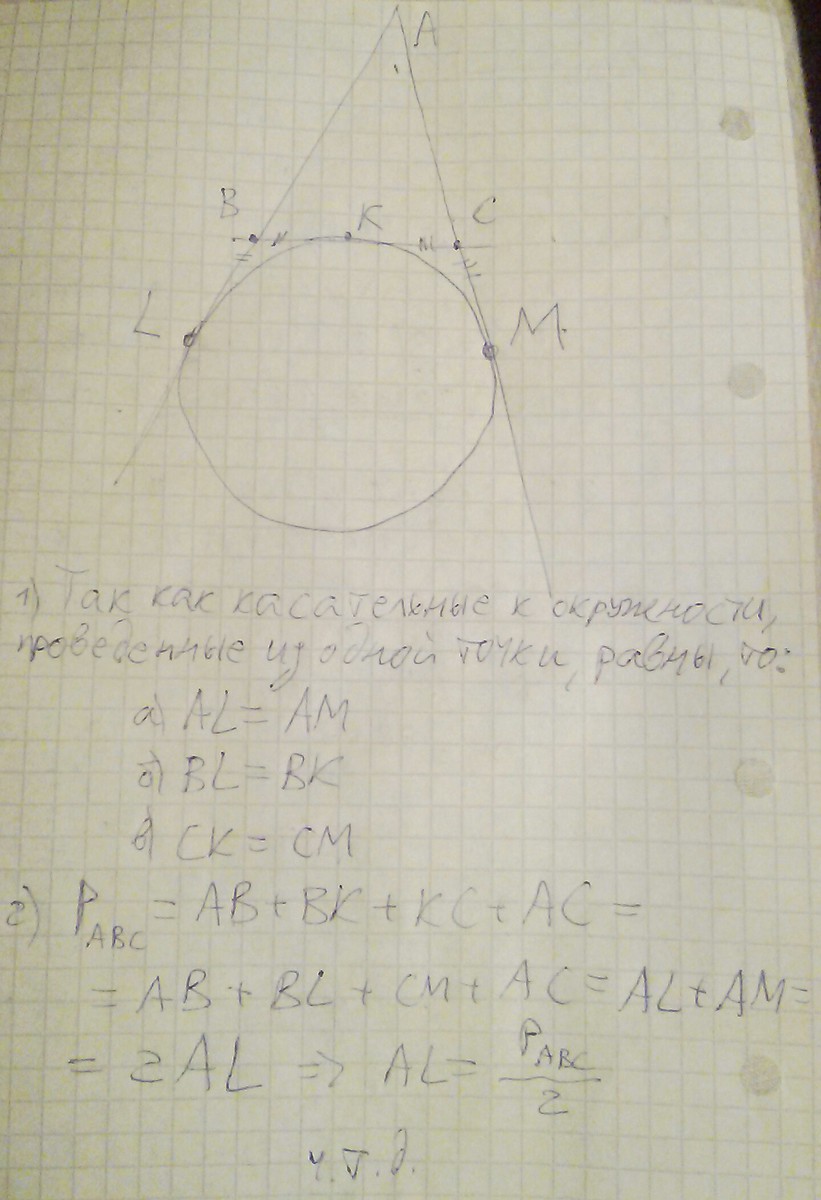 A
B
K
C
L
M
1) Так как касательные к окружности,
проведенные из одной точки, равны, то:
а) AL = AM
б) BL = BK
в) CK = CM
2) P_ABC = AB + BK + KC + AC =
= AB + BL + CM + AC = AL + AM =
= 2AL => AL = P_ABC / 2
ч.т.д.